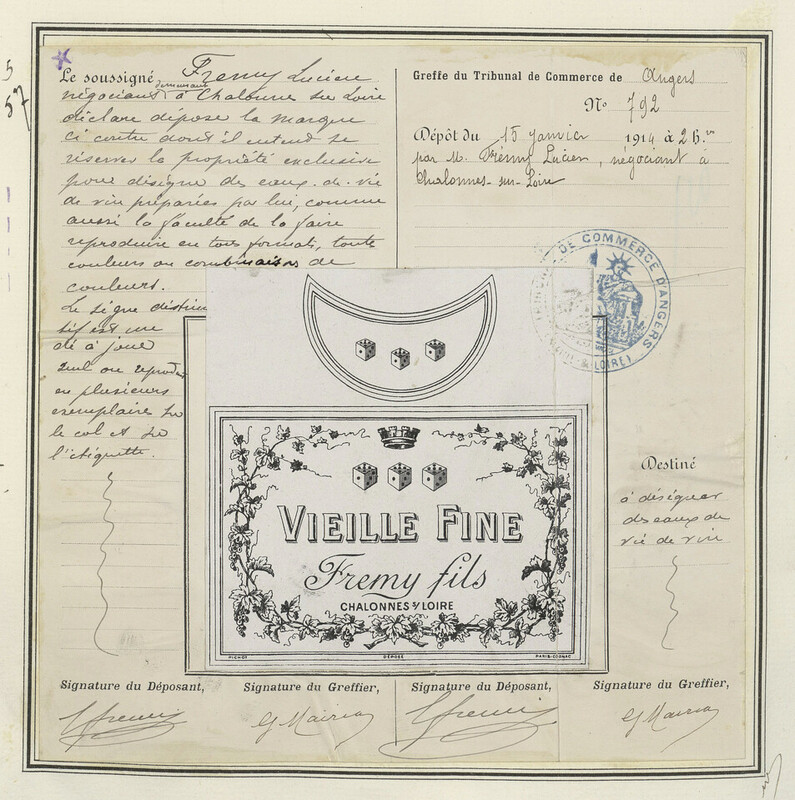 5
57
Le soussigné Fremy Lucien
négociant demeurant à Chalonne sur Loire
déclare dépose la marque
ci contre dont il entend se
réserver la propriété exclusive
pour désigne des eaux-de-vie
de vin préparées par lui, comme
aussi la faculté de la faire
reproduire en tous formats, toute
couleurs ou combinaisons de
couleurs.
Le signe distinc
tif est une
dé à jouer
seul ou reprodui
en plusieurs
exemplaire sur
le col et sur
l'étiquette.
Greffe du Tribunal de Commerce de Angers
N° 792
Dépôt du 15 janvier 1914 à 2 h.
par M. Frémy Lucien, négociant à
Chalonnes-sur-Loire
DE COMMERCE D'ANGERS
LOIRE)
VIEILLE FINE
Fremy fils
CHALONNES S/LOIRE
PICHOT
DÉPOSÉ
PARIS-COGNAC
Destiné
à désigner
des eaux de
vie de vin
Signature du Déposant,
Signature du Greffier,
Signature du Déposant,
Signature du Greffier,